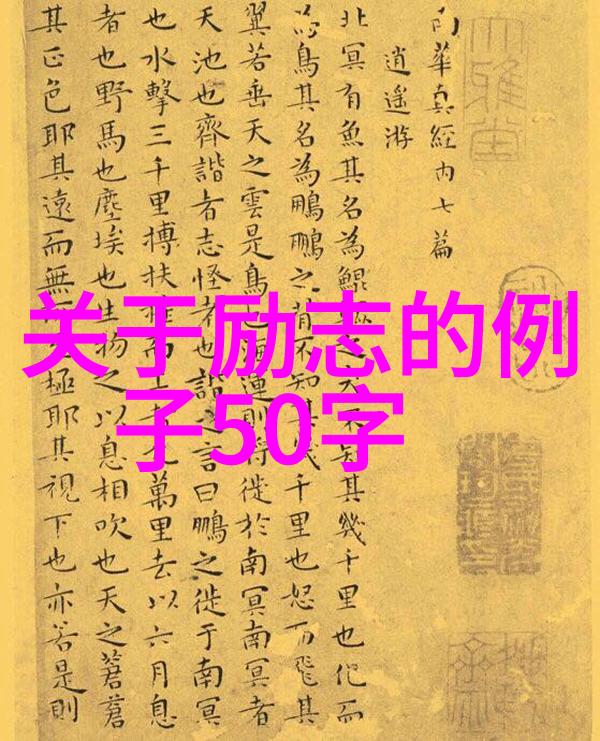 关于励志的例
子50字
南華真經內七篇
逍遙游
北冥有魚其名為鯤之大不知其幾千里也化而
為鳥其名為鵬鵬之背不知其幾千里也怒而飛其
翼若垂天之雲是鳥也海運則將徙於南冥南冥者
天池也齊諧者志怪者也諧之言曰鵬之徙于南冥
也水擊三千里搏扶搖而上者九萬里去以六月息
者也野馬也塵埃也生物之以息相吹也天之蒼蒼
其正色耶其遠而無所極耶其視下也亦若是則
大雅堂